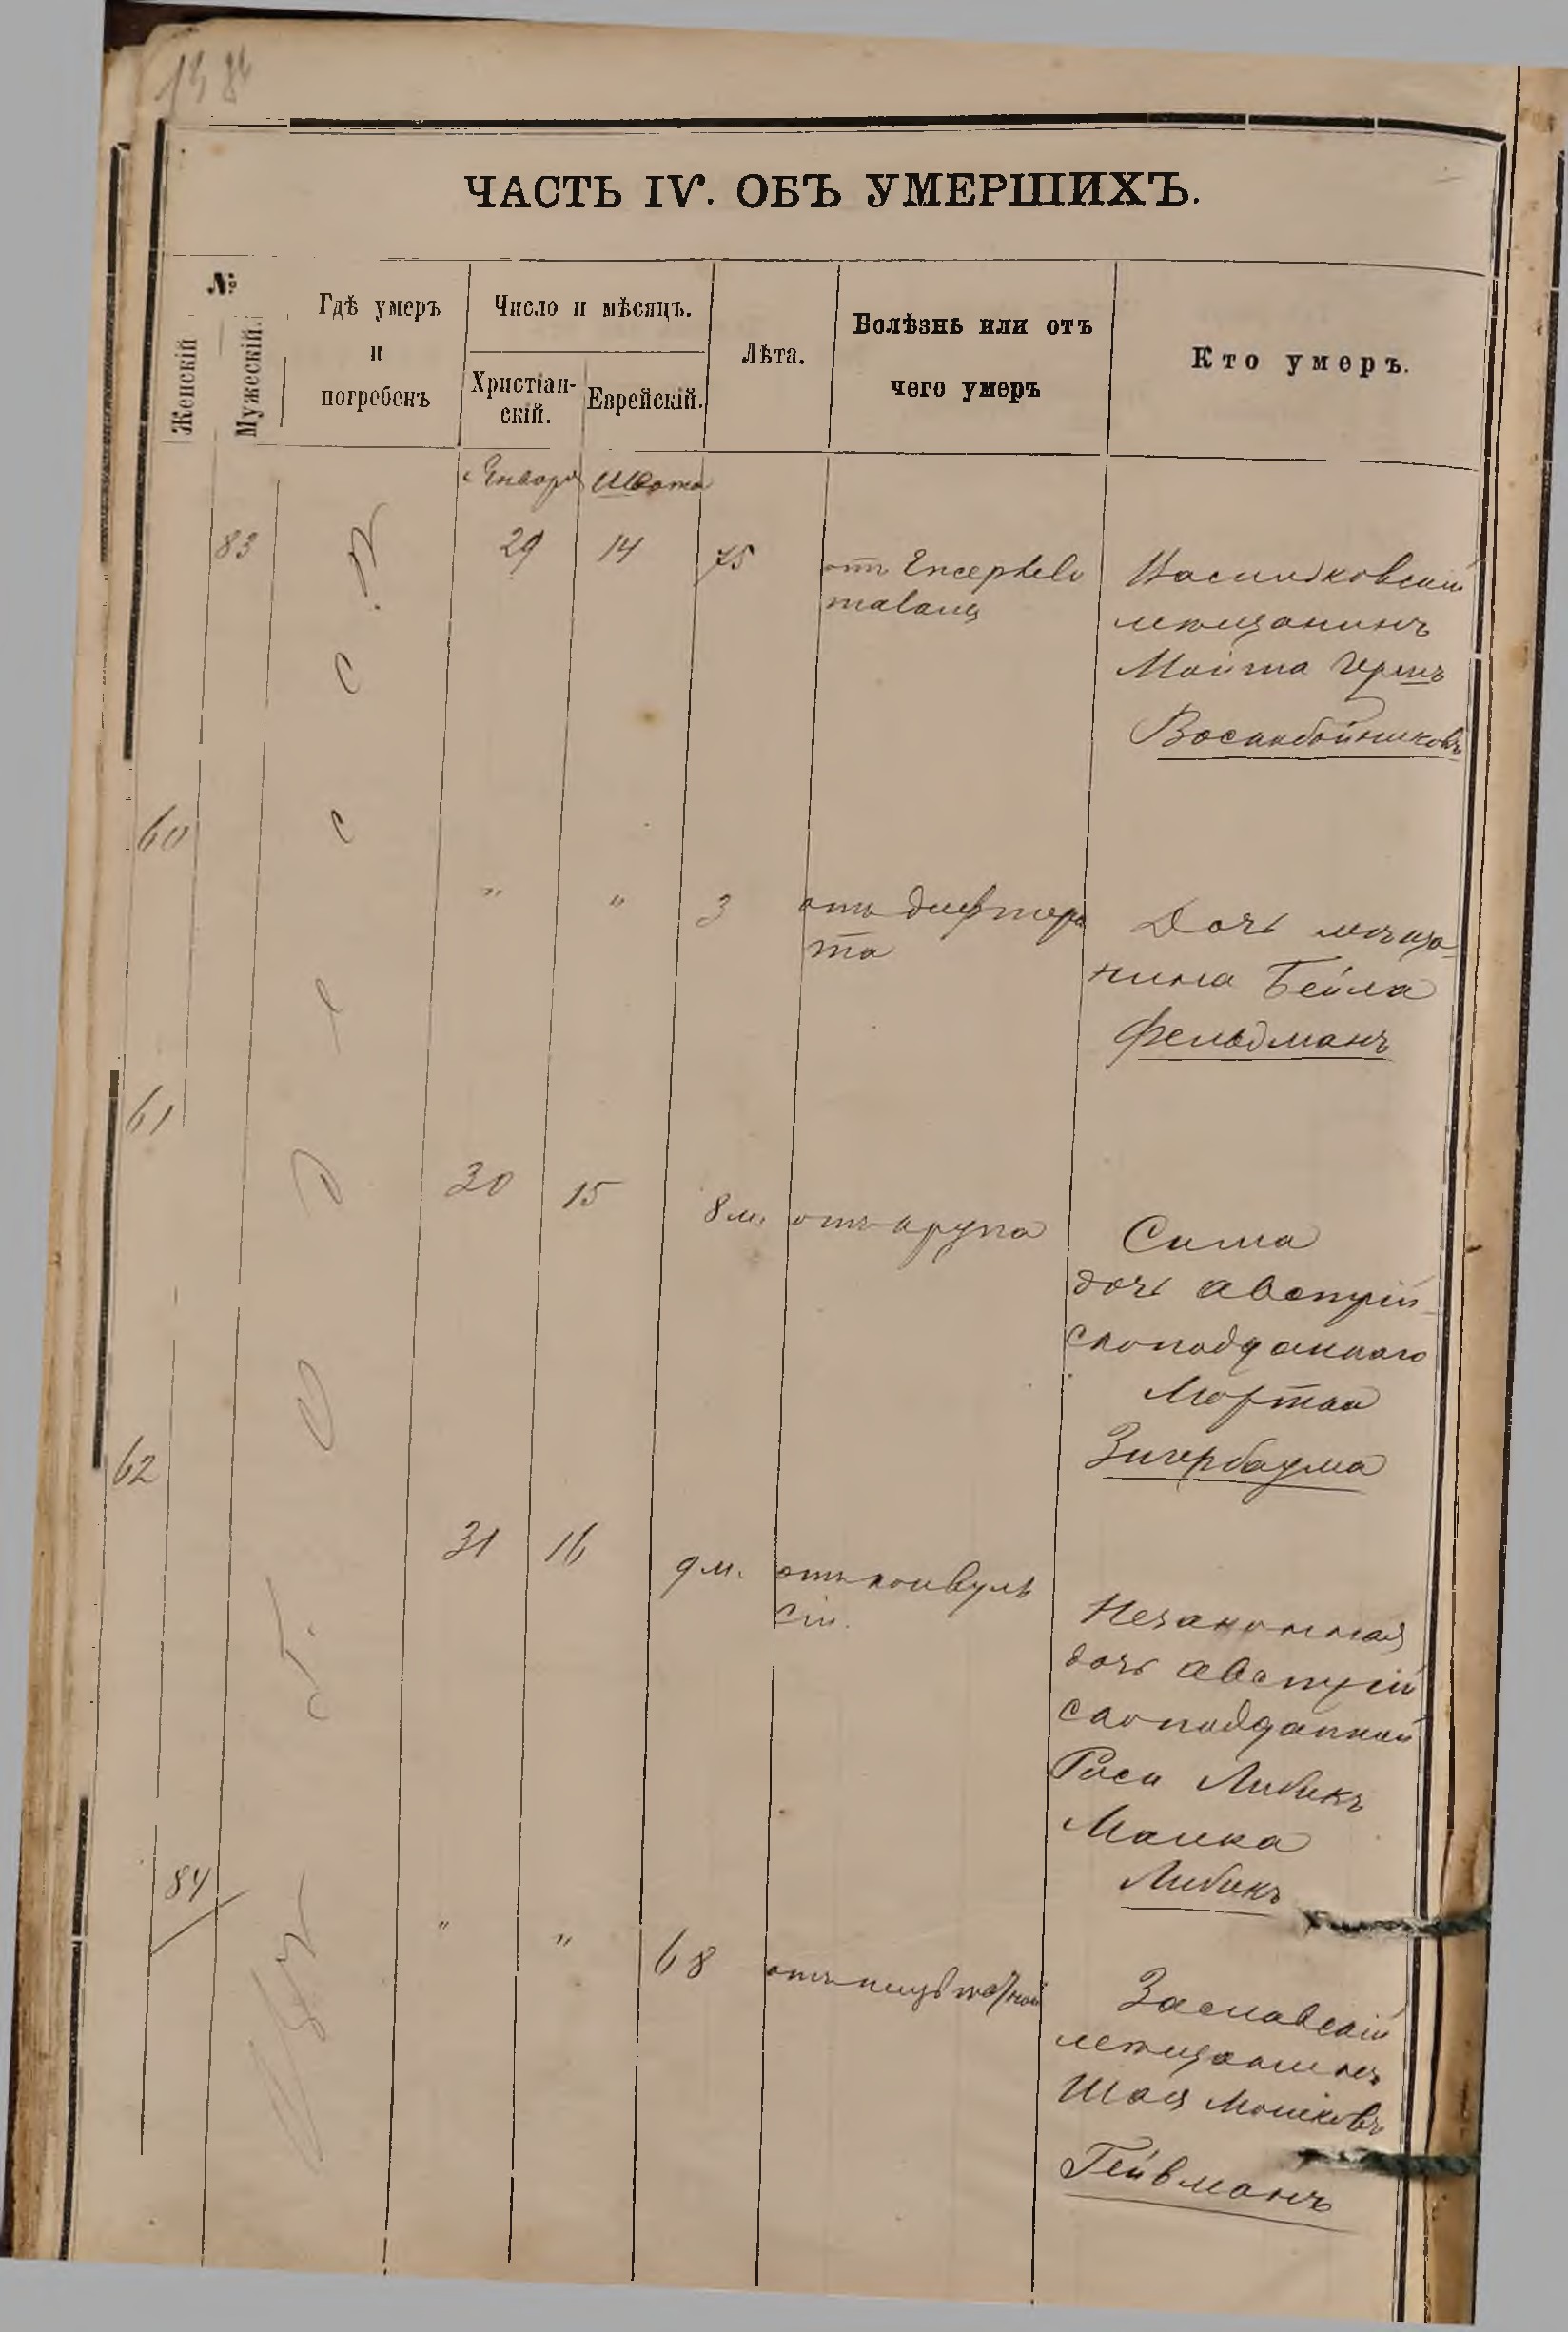 ЧАСТЬ IV. ОБЪ УМЕРШИХЪ.
№
Женскій
Мужескій.
Гдѣ умеръ
и
погребенъ
Число и мѣсяцъ.
Христіан-
скій.
Еврейскій.
Лѣта.
Болѣзнь или отъ
чего умеръ
Кто умеръ.
Января Швата
83 29 14 75 отъ Encephalo
malacia
Васильковскій
мѣщанинъ
Мойша
Воскобойниковъ
60 " " 3 отъ дифтери
та
Дочь мѣща-
нина Бейла
Фельдманъ
61 30 15 8 м. отъ крупа
Сима
дочь австрій-
скоподданнаго
Мортка
Зигербаума
62 31 16 9 м. отъ конвуль
сіи.
Незаконная
дочь австрій
скоподданной
Риси Либикъ
Малка
Либикъ
84 " " 68
Заславскій
мѣщанинъ
Шая Мошковъ
Гейвманъ